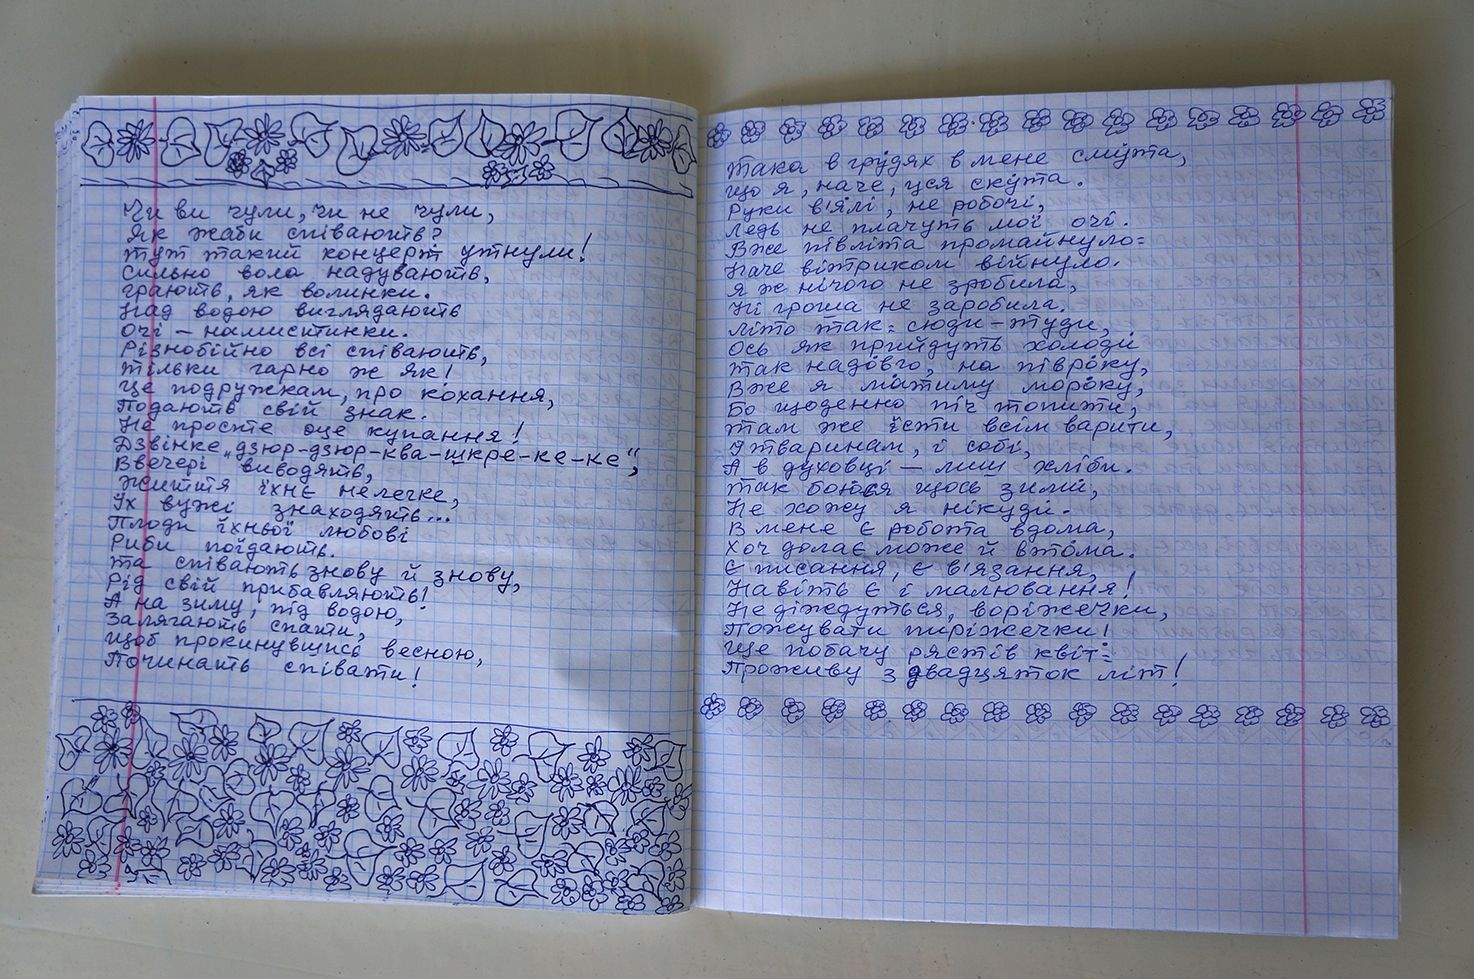 Чи ви чули, чи не чули,
Як жаби співають?
Тут такий концерт утнули!
Сильно вола надувають,
грають, як волинки.
Над водою виглядають
очі – намистинки.
Різнобійно всі співають,
тільки гарно ж як!
Це подружкам, про кохання,
Подають свій знак.
Не просте оце купання!
Дзвінке „дзюр-дзюр-ква-шкре-ке-ке",
Ввечері виводять,
Життя їхнє нелегке,
Їх вужі знаходять...
Плоди їхньої любові
Риби поїдають.
Та співають знову й знову,
Рід свій прибавляють!
А на зиму, під водою,
Залягають спати,
щоб прокинувшись весною,
Починать співати!
Така в грудях в мене смута,
що я, наче, уся скута.
Руки в'ялі, не робочі,
Ледь не плачуть мої очі.
Вже півліта промайнуло-
Наче вітриком війнуло.
Я ж нічого не зробила,
Ні гроша не заробила.
Літо так: сюди-туди,
Ось як прийдуть холоди
так надовго, на півроку,
Вже я матиму мороку,
Бо щоденно піч топити,
там же їсти всім варити,
І тваринам, і собі,
А в духовці – лиш хліби.
Так боюся щось зими,
Не хожу я нікуди.
В мене є робота вдома,
Хоч долає може й втома.
Є писання, є в'язання,
Навіть є і малювання!
Не діждуться, воріжечки,
Пожувати пиріжечки!
Ще побачу рястів квіт:
Проживу з двадцяток літ!